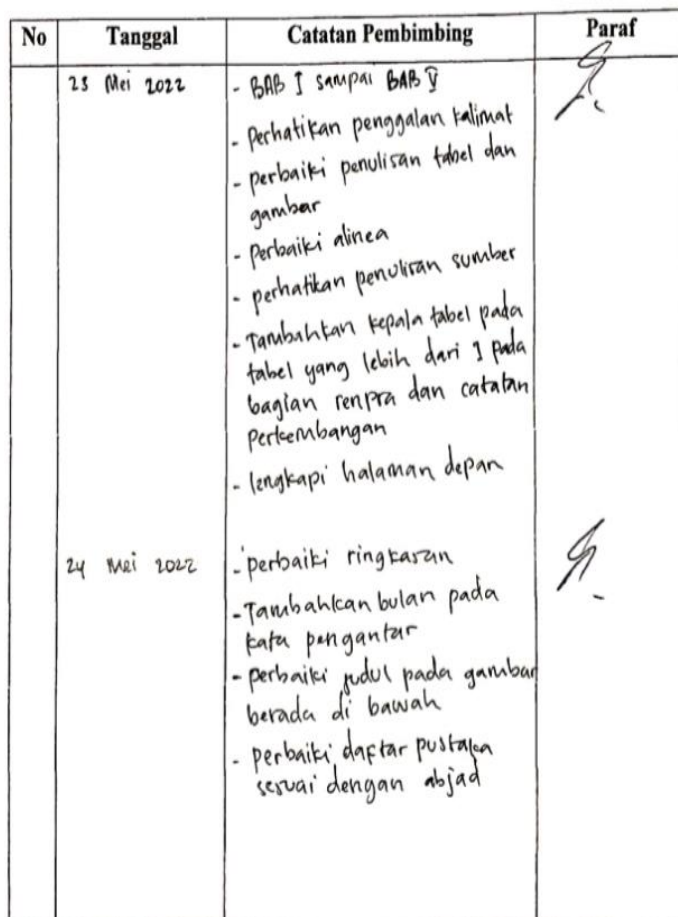 No Tanggal Catatan Pembimbing Paraf
23 Mei 2022 - BAB I sampai BAB V
- Perhatikan penggalan kalimat
- perbaiki penulisan tabel dan
gambar
- Perbaiki alinea
- perhatikan penulisan sumber
- Tambahkan kepala tabel pada
tabel yang lebih dari 1 pada
bagian renpra dan catatan
Perkembangan
- lengkapi halaman depan
24 Mei 2022 - perbaiki ringkasan
- Tambahkan bulan pada
kata pengantar
- perbaiki judul pada gambar
berada di bawah
- perbaiki daftar pustaka
sesuai dengan abjad